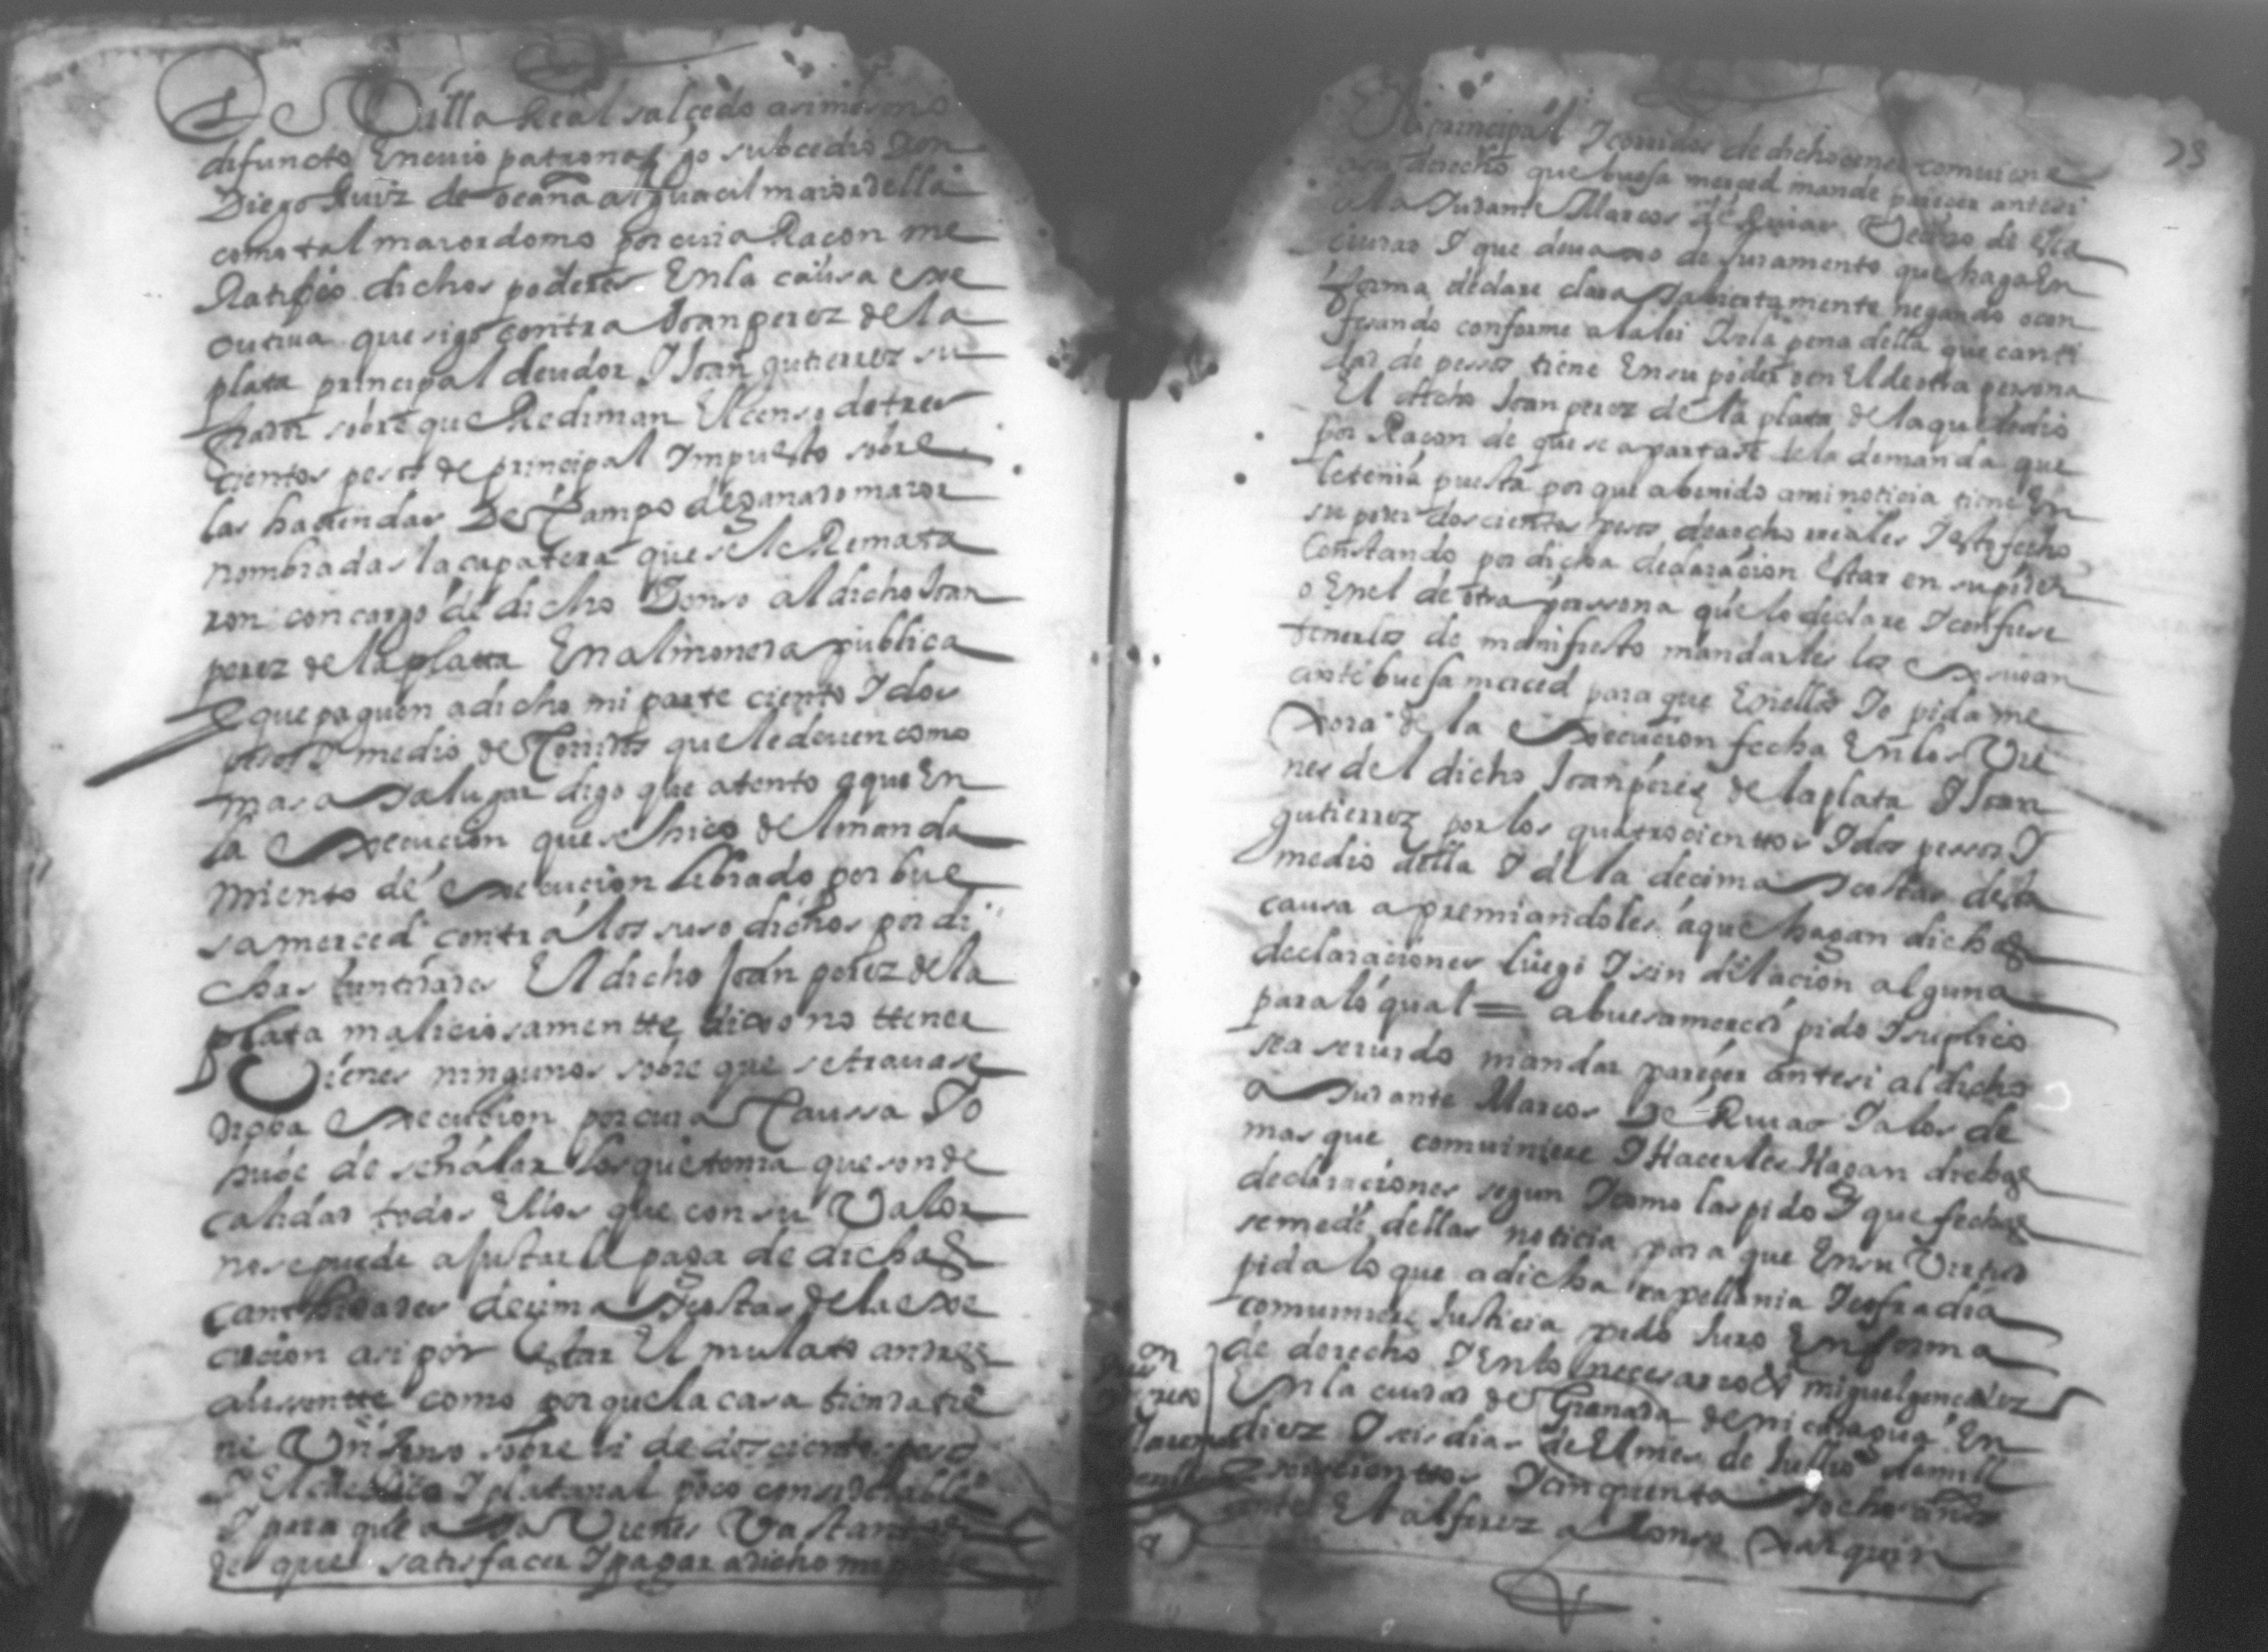 de Villa Real salcedo asimesmo
difuncto En cuio patronasgo subcedio Don
Diego Ruiz de ocaña alguacil maior della
como tal maiordomo por cuia Raçon me
Ratifico dichos poderes En la causa exe
cutiva que sigo contra Joan perez de la
plata principal deudor I Joan gutierrez su
fiador sobre que Rediman El censo de tres
cientos pesos de principal Impuesto sobre
las haciendas De Campo de ganado maior
nombradas la çapatera que se le Remata
ron con cargo de dicho Senso al dicho Joan
perez de la plata En almoneda publica
E que paguen a dicho mi parte ciento I dos
pesos I medio de Corridos que le deuen como
mas a Ia lugar digo que atento a que En
la Execucion que se hiço del manda
miento de Execucion librado por bue
sa merced contra los suso dichos por di
chas cantidades El dicho Joan perez de la
plata maliciosamentte dixo no ttener
Vienes ningunos sobre que se trauase
dicha Execucion por cuia Caussa Io
hube de señalar los que tenia que son de
calidad todos Ellos que con su Valor
no se puede ajustar la paga de dichas
canthidades decima I costas de la exe
cucion asi por estar El mulato andres
ausentte como por que la casa tienda tie
ne Vn Senso sobre si de doscientos pesos
I El cacao I platanal poco considerable
I para que a Ia Vienes Vastantes
de que satisfacer I pagar a dicho mi parte
23
El principal I corridos de dicho censo comuiene
a su derecho que buesa merced mande parecer ante si
al aIudante Marcos de Riuas Vecino de esta
ciudad I que deuaxo de Juramento que haga En
forma declare clara I abiertamente negando o con
fesando conforme a la lei I so la pena della que canti
dad de pesos tiene En su poder o en El de otra persona
El dicho Joan perez de la plata de la que le dio
por Raçon de que se apartase de la demanda que
le tenia puesta por que a benido a mi noticia tiene En
su poder doscientos pesos de a ocho reales I esto fecho
Constando por dicha declaracion Estar en su poder
o En el de otra perssona que lo declare I confiese
tenerlos de manifiesto mandarles los Exsiuan
ante buesa merced para que En ellos Io pida me
xora de la Execucion fecha En los Vie
nes del dicho Joan perez de la plata I Joan
gutierrez por los quatrocienttos I dos pesos I
medio della I de la decima I costas desta
causa apremiandoles a que hagan dichas
declaraciones luego I sin dilacion alguna
para lo qual = a buesa merced pido I suplico
sea seruido mandar pareçer ante si al dicho
aIudante Marcos De Riuas I a los de
mas que comuiniere I Hacerles Hagan dichas
declaraciones segun I como las pido I que fechas
se me de dellas noticia para que En su Virtud
pida lo que a dicha capellania I cofradia
comuiniere Justicia pido Juro En forma
de derecho I En lo necesario &a miguel gonçalez
En la ciudad de Granada de nicaragua En
diez I seis dias de El mes de Jullio de mill
E seiscienttos I cinquenta I ocho años
ante El alferez alonso Xarquin